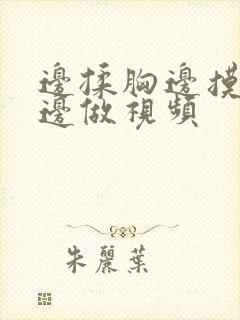 邊揉胸邊摸
邊做視頻
朱麗葉